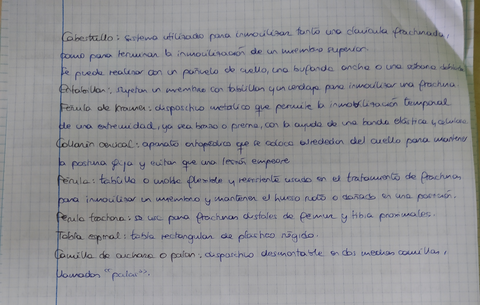 Cabestrillo: sistema utilizado para inmovilizar tanto una clavícula fracturada,
como para terminar la inmovilización de un miembro superior.
Se puede realizar con un pañuelo de cuello, una bufanda ancha o una sábana
Entablillar: sujetan un miembro con tablillas y un vendaje para inmovilizar una fractura
Férula de kramer: dispositivo metálico que permite la inmovilización temporal
de una extremidad, ya sea brazo o pierna, con la ayuda de una banda elástica o
Collarín cervical: aparato ortopédico que se coloca alrededor del cuello para mantener
la postura fija y evitar que una lesión empeore
Férula: tablilla o molde flexible y resistente usado en el tratamiento de fracturas
para inmovilizar un miembro y mantener el hueso roto o dañado en una posición.
Férula tractora: se usa para fracturas distales de fémur y tibia proximales.
Tabla espinal: tabla rectangular de plástico rígido.
Camilla de cuchara o palas: dispositivo desmontable en dos medias camillas,
llamadas "palas".